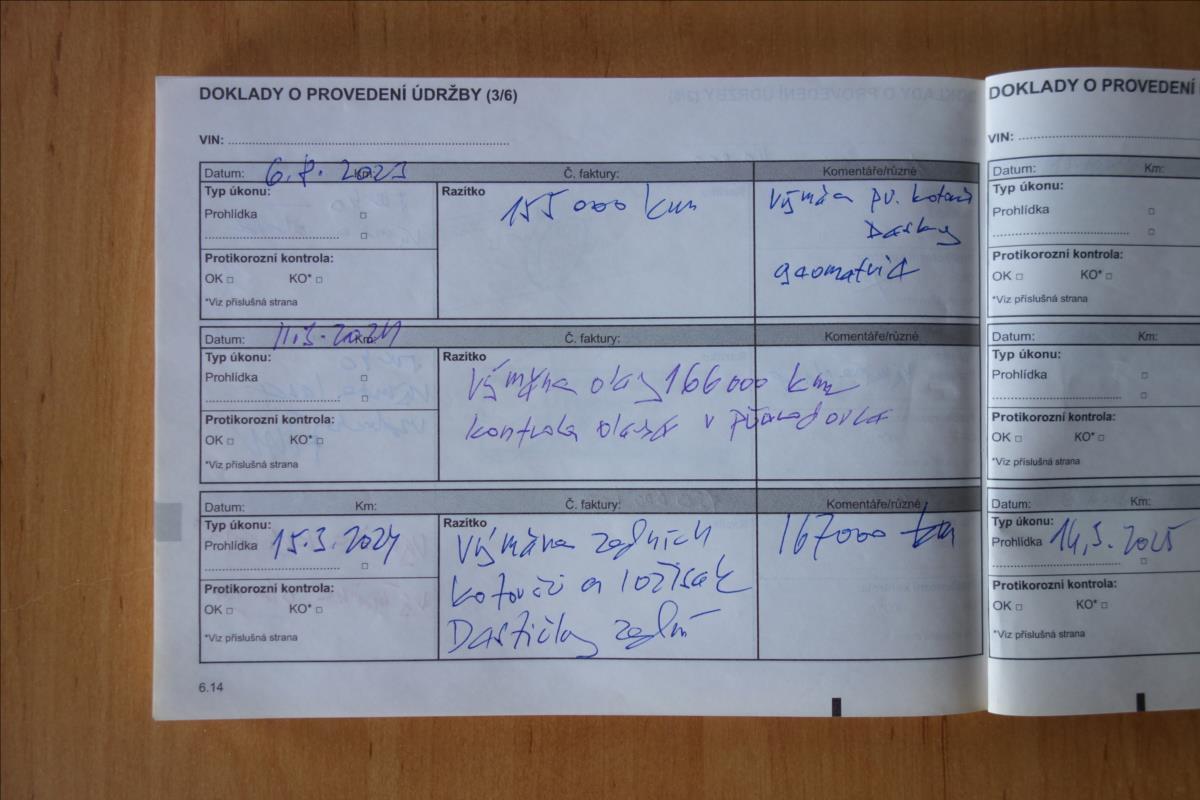 DOKLADY O PROVEDENÍ ÚDRŽBY (3/6)
VIN:
Datum: 6.8.2023 Km: Č. faktury: Komentáře/různé
Typ úkonu: Razítko
Prohlídka
155 000 km
Výměna př. kotouč
Destky
geometrie
Protikorozní kontrola:
OK KO*
*Viz příslušná strana
Datum: 11.3.2024 Km: Č. faktury: Komentáře/různé
Typ úkonu: Razítko
Prohlídka
Výměna olej 166000 km
kontrola oleje v převodovce
Protikorozní kontrola:
OK KO*
*Viz příslušná strana
Datum: Km: Č. faktury: Komentáře/různé
Typ úkonu: Razítko
Prohlídka 15.3.2024
Výměna zadních
kotoučů a ložisek
Destičky zadní
167000 km
Protikorozní kontrola:
OK KO*
*Viz příslušná strana
6.14
DOKLADY O PROVEDENÍ
VIN:
Datum: Km:
Typ úkonu:
Prohlídka
Protikorozní kontrola:
OK KO*
*Viz příslušná strana
Datum: Km:
Typ úkonu:
Prohlídka
Protikorozní kontrola:
OK KO*
*Viz příslušná strana
Datum: Km:
Typ úkonu:
Prohlídka 14.3.2025
Protikorozní kontrola:
OK KO*
*Viz příslušná strana